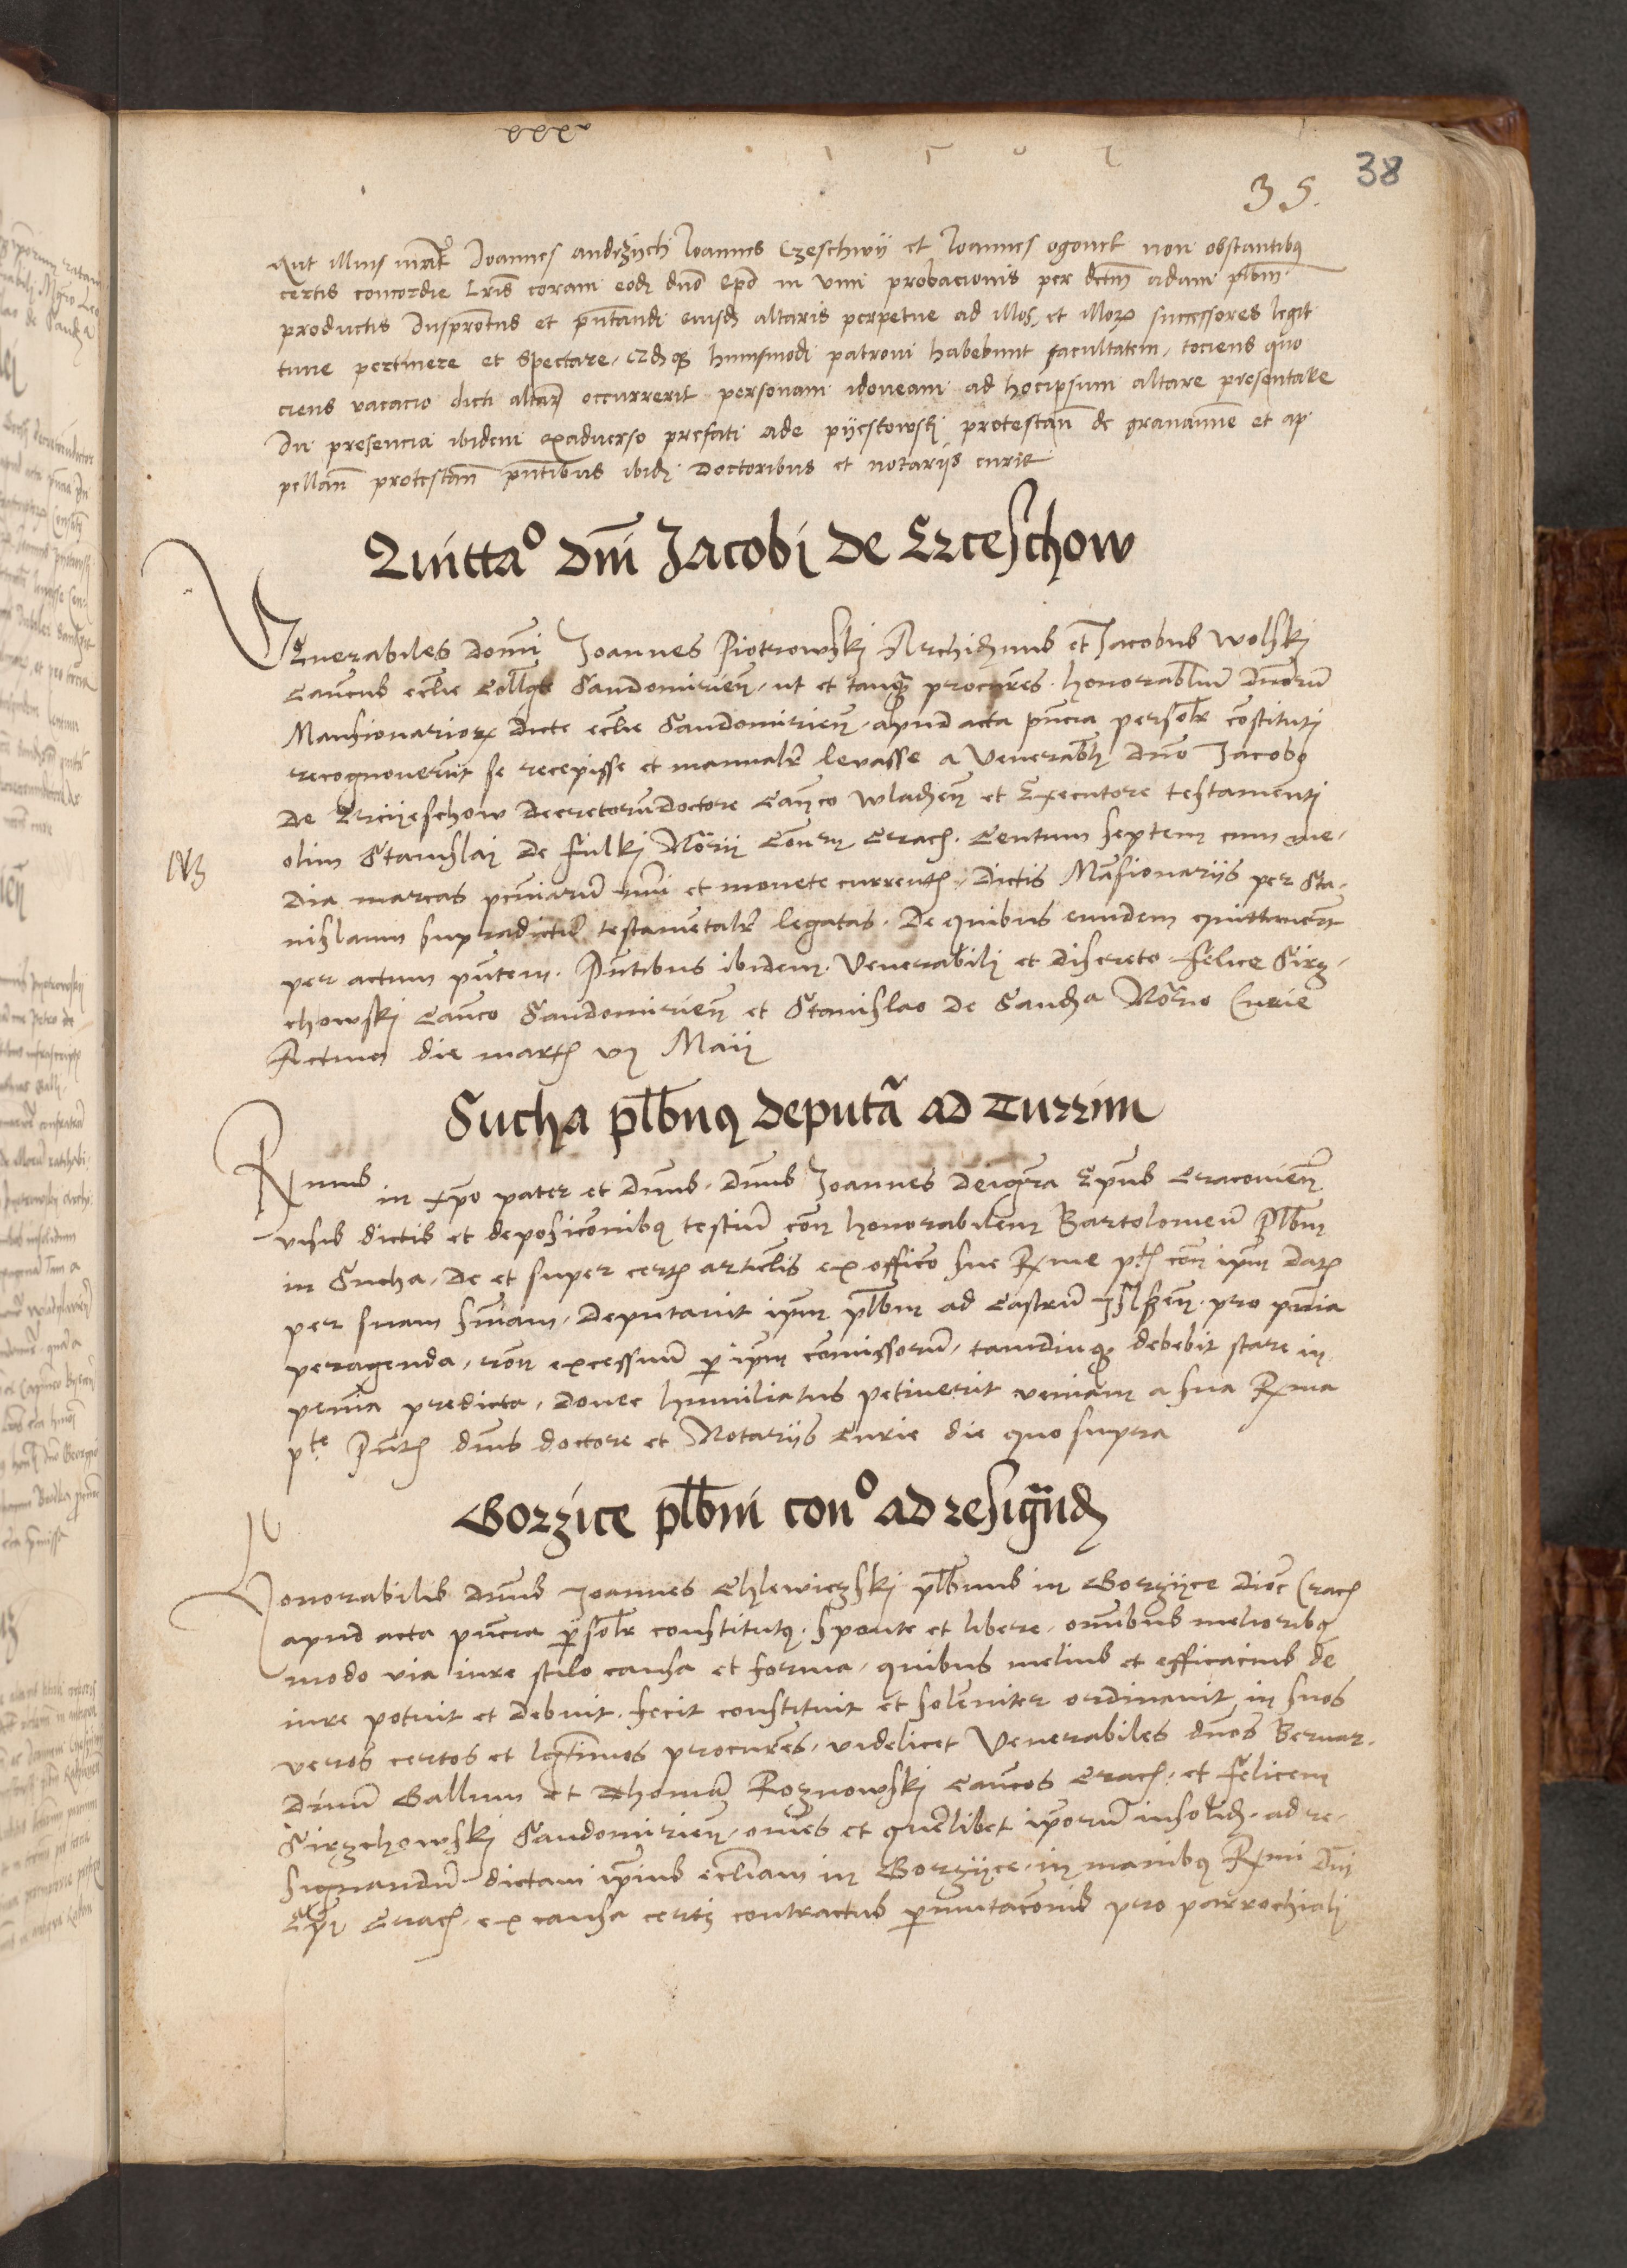 38
35.
Joannes andrzych Joannes Czeschwy et Joannes ogonek non obstantibq
certis concordie lris coram eodz dno Epo in vim probacionis per dctm adam plbm
productis Juspntandi ensdz altaris perpetue ad illos et illorz successores legit
time pertinere et spectare hmsmodi patroni habebunt facultatem tociens quo
ciens vacacio dicti altar occurrerit personam idoneam ad hocipsum altare presentare
In presencia ibidem exaduerso prefati ade pyestowski protestan de grauamne et ap
pellan protestan pntibus ibidz Doctoribus et notarijs curie
Quitta° Dni Jacobi de Erceschow
Venerabiles Domi Joannes Piotrowskj Archidznus et Jacobus Wolskj
Cancus eclie Collgte Sandomirien ut et tanqz procures honorabliu dnoru
Mansionariorz dicte eclie Sandomirien apud acta pncia persolr costitutj
recognouerut se recepisse et manualr leuasse a Venerablj dno Jacobo
de Erczyeschow Decretoru Doctore Canco Wladzen et Executore testamentj
olim Stanislaj de Fulkj Norij Consry Cracz Centum septem cum me-
dia marcas pcuniaru nmi et monete currentz dictis Mansionariis per Sta-
nislaum supradictu testamentalr legatas de quibus eundem quittauert
per actum pntem Pntibus ibidem Venerabilj et discreto Felice Sirz-
chowskj Canco Sandomirien et Stanislao de Sandza Norio Curie
NB
Actum die martz vj Maij
Sucha plbnq deputa ad Turrim
Rmus in xpo pater et dnus dnus Joannes deigra Epus Cracouien
visis dictis et deposiconibq testiu con honorabilem Bartolomeu Plbm
in Sucha de et super certz articlis ex officio sue Rme ptz con ipm datz
per suam sniam deputauit ipm plbm ad Castru Jlszen pro pnia
peragenda ron excessuu p ipm comissoru tamdiuqz debebit stare in
penia predicta donec humiliatus petiuerit veniam a sua Rma
pte Pntz dnis doctore et Notarijs Curie die quo supra
Gorzice plbni con° ad resignadz
Honorabilis dnus Joannes Chlewiczskj plbnus in Gorzyce dioc Cracz
apud acta pncia psolr constitutq sponte et libere omibus melioribq
modo via iure stilo causa et forma quibus melius et efficacius de
iure potuit et debuit fecit constituit et soleniter ordinauit in suos
veros certos et lgtimos procures videlicet Venerabiles dnos Bernar-
dinu Gallum et Thoma Roznowskj Cancos Cracz et Felicem
Sirzchowskj Sandomirien omes et quelibet iporu insolidz ad re-
signandu dictam ipius ecliam in Gorzyce in manibq Rmi Dni
Epi Cracz ex causa certj contractus pmutaconis pro parrochialj